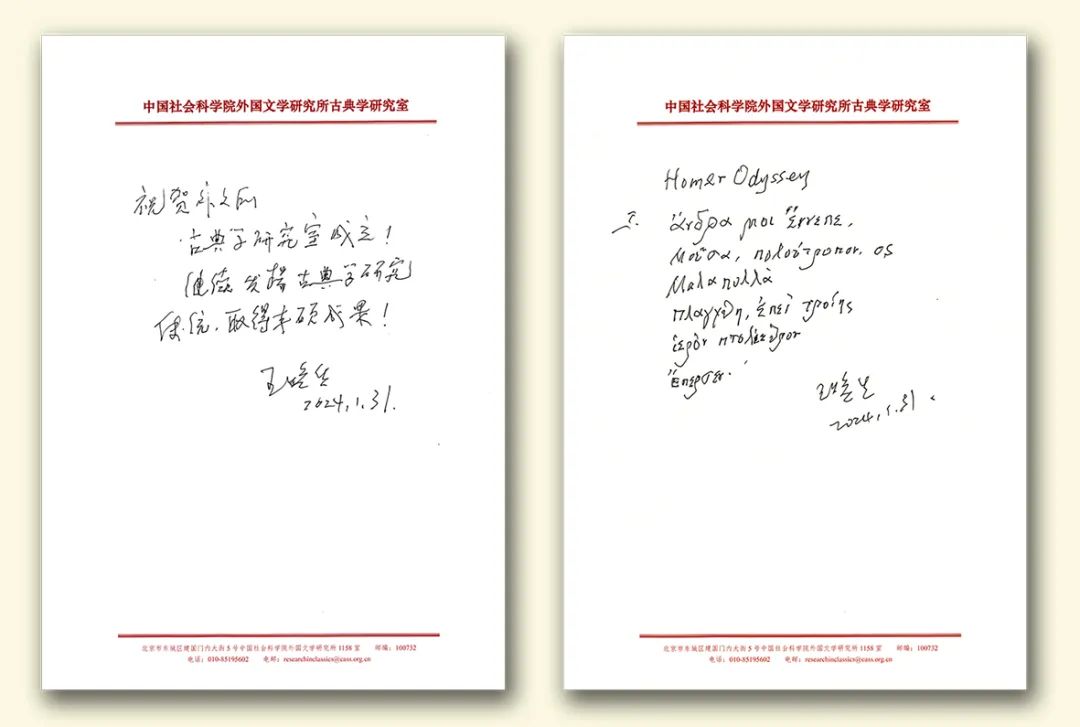 中国社会科学院外国文学研究所古典学研究室
祝贺外文所
古典学研究室成立!
继续发扬古典学研究
传统,取得丰硕成果!
王焕生
2024.1.31.
北京市东城区建国门内大街5号中国社会科学院外国文学研究所1158室 邮编:100732
电话:010-85195602 电邮:researchinclassics@cass.org.cn
中国社会科学院外国文学研究所古典学研究室
Homer Odyssey
I. ἄνδρα μοι ἔννεπε,
Μοῦσα, πολούτροπον. ος
Μαλα πολλὰ
πλαγχθη, ἐπεὶ τροίης
ἱερὸν πτολίεθρον
ἔπερσεν.
王焕生
2024.1.31
北京市东城区建国门内大街5号中国社会科学院外国文学研究所1158室 邮编:100732
电话:010-85195602 电邮:researchinclassics@cass.org.cn